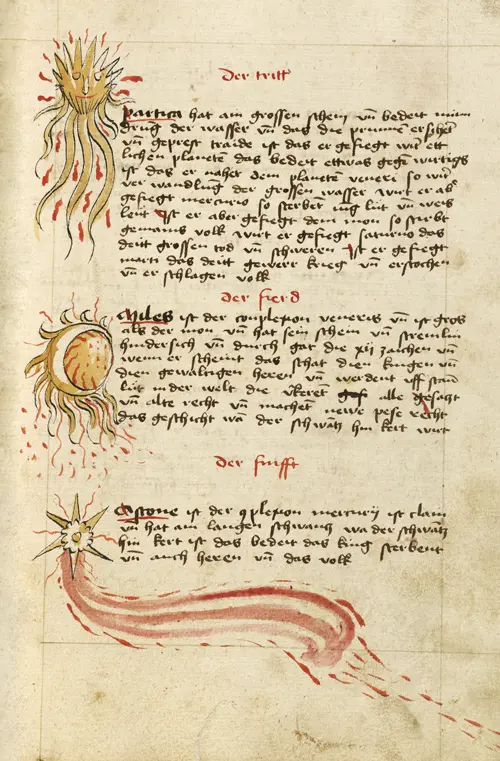 der tritt
Partica hat am grossen schein vn̄ bedeit minn
drūg der wasser vn̄ das die prunnen ersihet
vn̄ geprest traide ist das er gefiegt wirt ett
lichen planetē das bedeit ettwas gegē wirtigs
ist das er nahet dem planetē veneri so wirt
ver wandlūg der grossen wasser wirt er aber
gefiegt mercurio so sterbent iūg lüt vn̄ weis
leüt Ist er aber gefiegt dem mon so stirbt
gemains volk wirt er gefiegt saturno das
deitt grossen tod vn̄ schweren Ist er gefiegt
marti das deitt gewerr krieg vn̄ erstochen
vn̄ er schlagen volk
der fierd
Miles ist der conplexion veneris vn̄ ist gros
als der mon vn̄ hat sein schein vn̄ stremlin
hindersich vn̄ durch gat die xij zaichen vn̄
wenn er scheint das schat dien kingen vn̄
dien gewaltigen heren vn̄ werdent uff stan
lüt in der welt die v̈kerent alle gesatzt
vn̄ alte recht vn̄ machet newe pese recht
das geschicht wa der schwātz hin kert wirt
der finfft
Astone ist der 9plexion mercurij ist clain
vn̄ hat am langen schwantz wa der schwātz
hin kert ist das bedeit das king sterbent
vn̄ auch heren vn̄ das volk